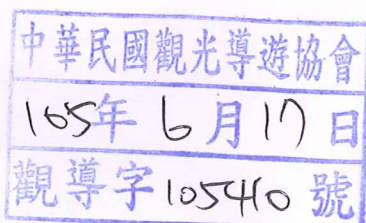 中華民國觀光導遊協會
105年6月17日
觀導字105410號